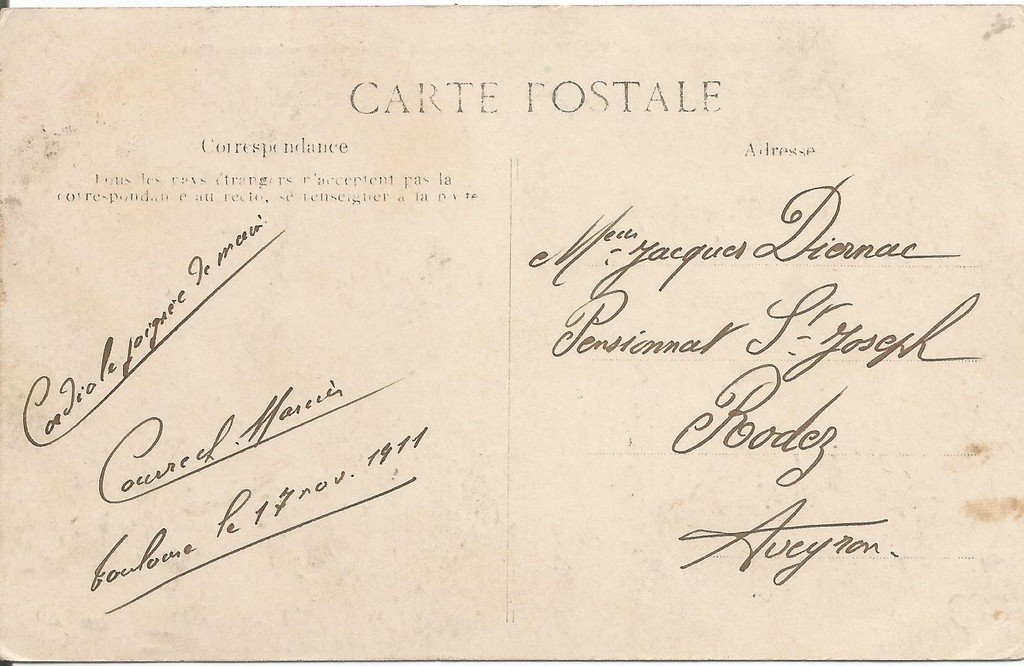 CARTE POSTALE
Correspondance
Tous les pays étrangers n'acceptent pas la
correspondance au recto, se renseigner à la poste
Cordiale poignée de main
Courrech
Toulouse le 17 nov. 1911
Adresse
Meur Jacques Diernac
Pensionnat St Joseph
Rodez
Aveyron.